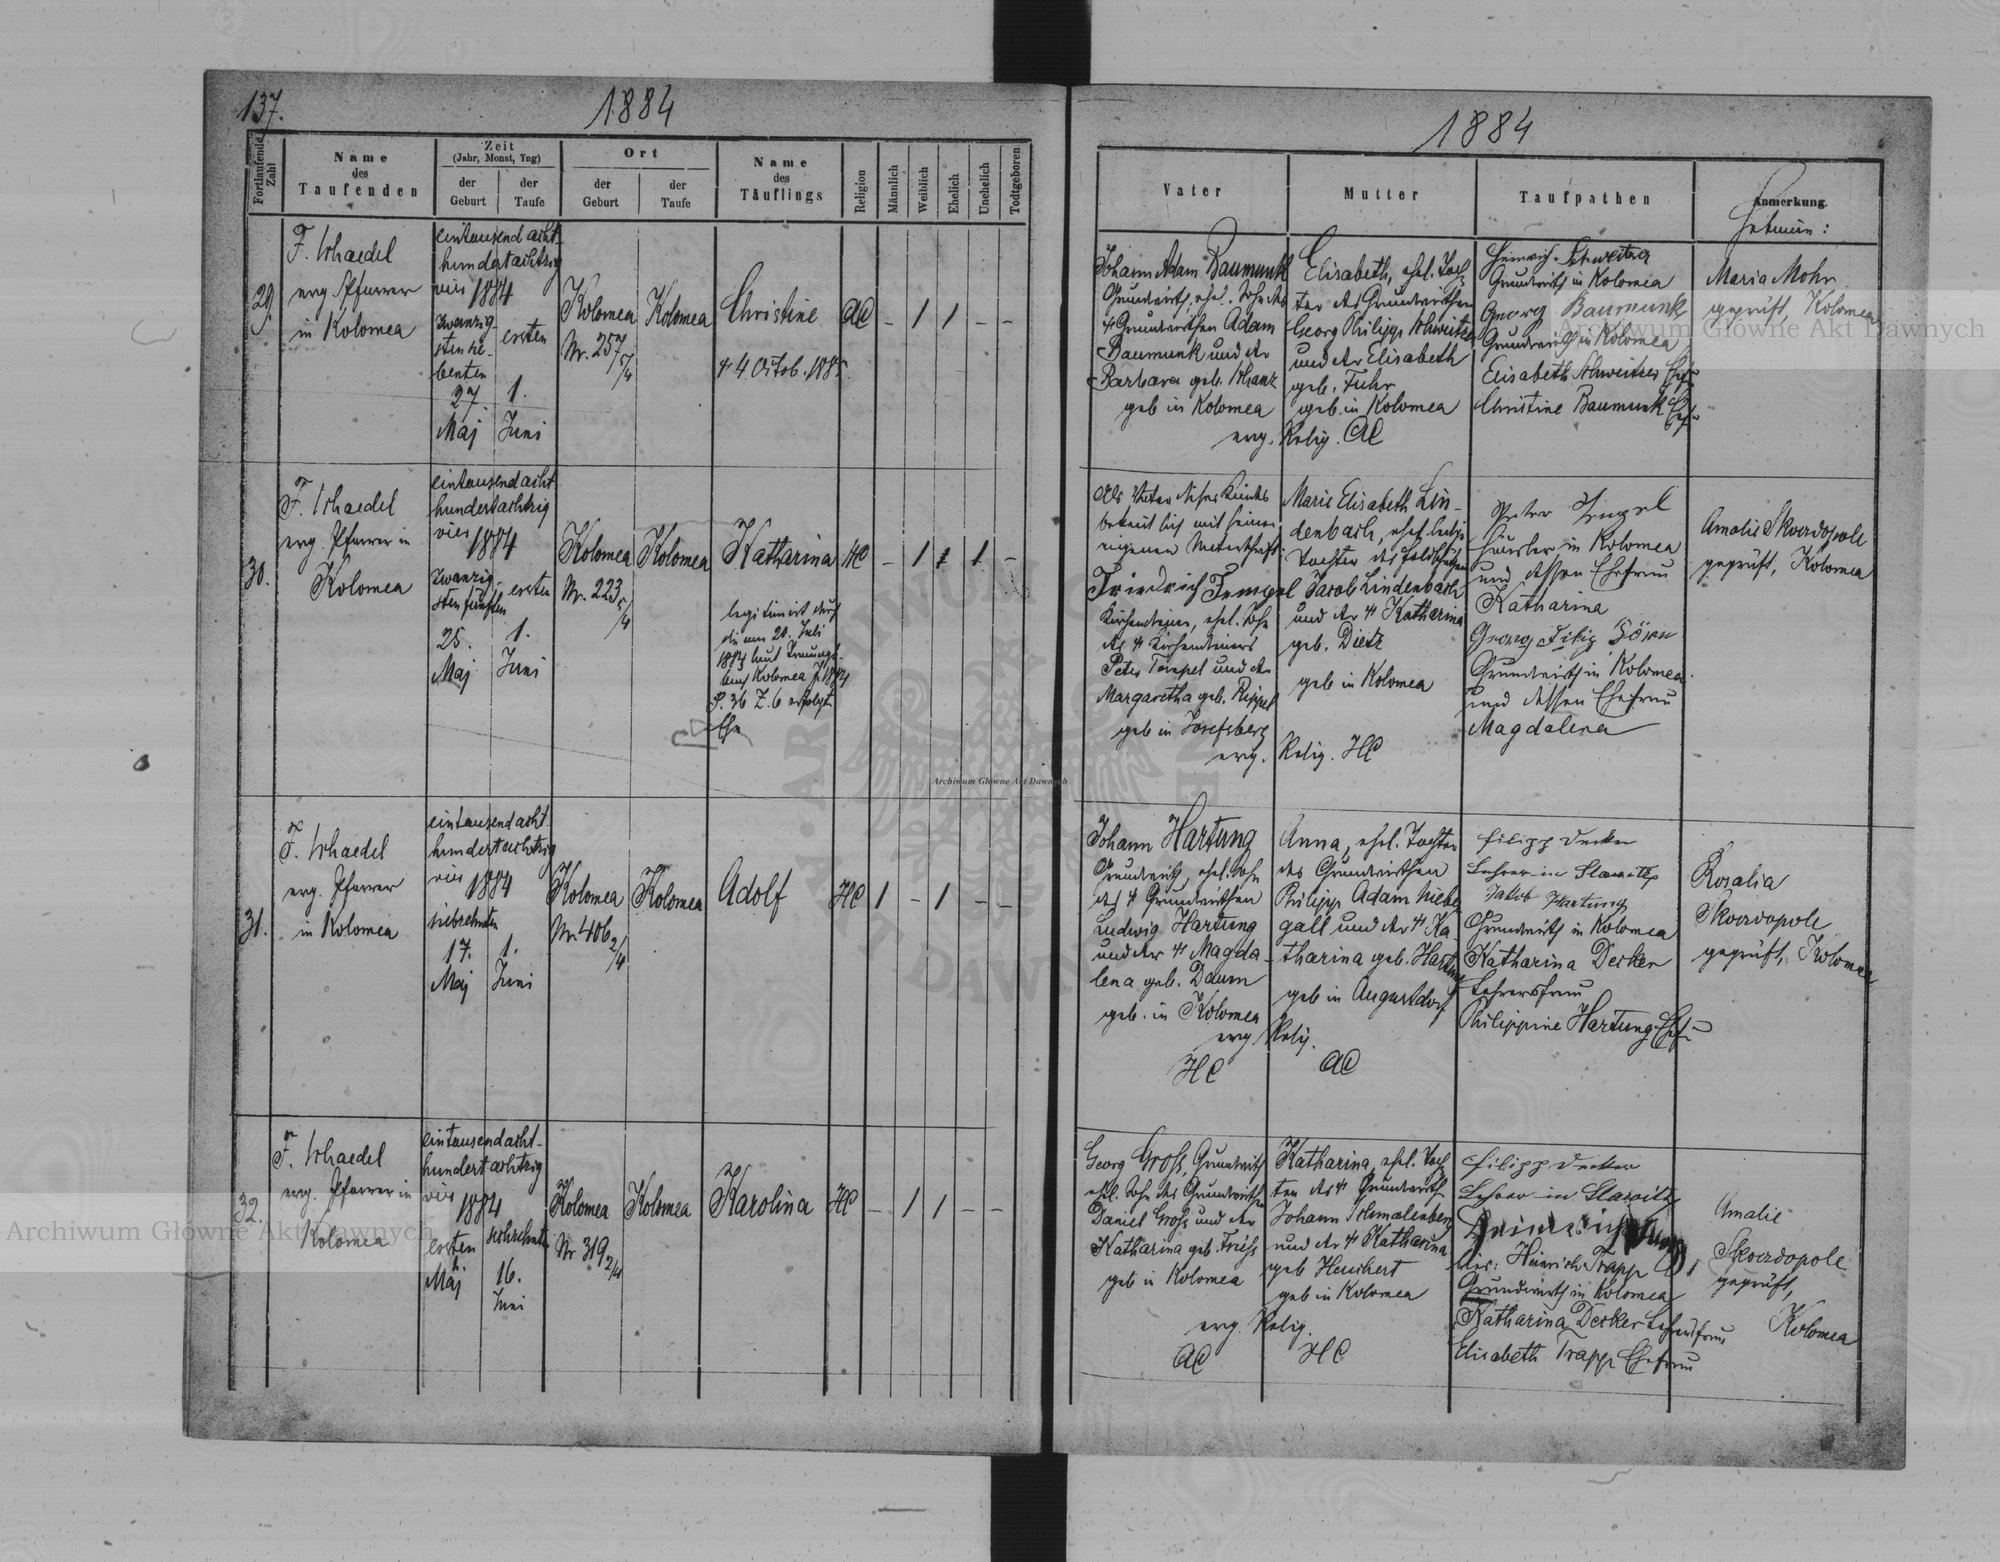 137.
1884
Fortlaufende Zahl
Name
des
Taufenden
Zeit
(Jahr, Monat, Tag)
der
Geburt
der
Taufe
Ort
der
Geburt
der
Taufe
Name
des
Täuflings
Religion
Männlich
Weiblich
Ehelich
Unehelich
Todtgeboren
29.
F. Schaedel
evg. Pfarrer
in Kolomea
eintausend acht-
hundertachtzig
vier 1884
zwanzig-
sten sie-
benten
27
Maj
ersten
1.
Juni
Kolomea
Nr. 257
Kolomea
Christine
† 4. Octob. 1885.
AC
- 1 1 - -
30.
F. Schaedel
evg. Pfarrer in
Kolomea
eintausend acht
hundertachtzig
vier 1884
zwanzig-
sten fünften
25.
Maj
ersten
1.
Juni
Kolomea
Nr. 223
Kolomea
Katharina
legitimirt durch
die am 20. Juli
1884 laut Trauungs-
buch Kolomea
P. 36 Z. 6 erfolgte
Ehe
HC
- 1 1 1 -
31.
F. Schaedel
evg. Pfarrer
in Kolomea
eintausend acht
hundertachtzig
vier 1884
siebzehnten
17.
Maj
1.
Juni
Kolomea
Nr. 406 2/4
Kolomea
Adolf
HC
1 - 1 - -
32.
F. Schaedel
evg. Pfarrer in
Kolomea
eintausend acht-
hundert achtzig
vier 1884
ersten
1.
Maj
sechzehnten
16.
Juni
Kolomea
Nr 319 2/4
Kolomea
Karolina
HC
- 1 1 - -
1884
Vater
Mutter
Taufpathen
Anmerkung.
Hebamme:
Johann Adam Baumunk
Grundwirth, ehel. Sohn des
† Grundwirthen Adam
Baumunk und der
Barbara geb. Schanz
geb in Kolomea
evg. Relig. AC
Elisabeth, ehel. Toch
ter des Grundwirthen
Georg Philipp Schweitzer
und der Elisabeth
geb. Fuhr
geb. in Kolomea
Heinrich Schweitzer
Grundwirth in Kolomea
Georg Baumunk
Grundwirth in Kolomea
Elisabeth Schweitzer Ehef
Christine Baumunk Ehef
Maria Mohr
geprüft, Kolomea
Als Vater dieses Kindes
bekennt sich mit seiner
eigenen Unterschrift:
Friedrich Tempel
Kirchendiener, ehel. Sohn
des † Kirchendieners
Peter Tempel und der
Margaretha geb. Rippel
geb in Josefsberg
evg. Relig. HC
Marie Elisabeth Lin-
denbach, ehel.
Tochter des
Jacob Lindenbach
und der † Katharina
geb. Dietz
geb in Kolomea
Peter Tempel
Häusler in Kolomea
und dessen Ehefrau
Katharina
Georg
Grundwirth in Kolomea
und dessen Ehefrau
Magdalena
Amalie Skordopole
geprüft, Kolomea
Johann Hartung
Grundwirth, ehel. Sohn
des † Grundwirthen
Ludwig Hartung
und der † Magda-
lena geb. Daum
geb. in Kolomea
evg. Relig.
HC
Anna, ehel. Tochter
des Grundwirthen
Philipp Adam Nieber
gall und der † Ka-
tharina geb. Hartung
geb in Augustdorf
AC
Filipp Decker
Lehrer in Slawitz
Jakob Hartung
Grundwirth in Kolomea
Katharina Decker
Lehrersfrau
Philippine Hartung Ehef
Rosalia
Skordopole
geprüft, Kolomea
Georg Groß, Grundwirth
ehel. Sohn des Grundwirth
Daniel Groß und der
Katharina geb. Frieß
geb in Kolomea
evg. Relig.
AC
Katharina, ehel. Toch
ter des † Grundwirth
Johann Schmalenberg
und der † Katharina
geb Heuchert
geb in Kolomea
HC
Filipp Decker
Lehrer in Slawitz
Heinrich Trapp
Grundwirth in Kolomea
Katharina Decker Lehrersfrau
Elisabeth Trapp Ehefrau
Amalie
Skordopole
geprüft,
Kolomea
Archiwum Główne Akt Dawnych
Archiwum Główne Akt Dawnych
Archiwum Główne Akt Dawnych